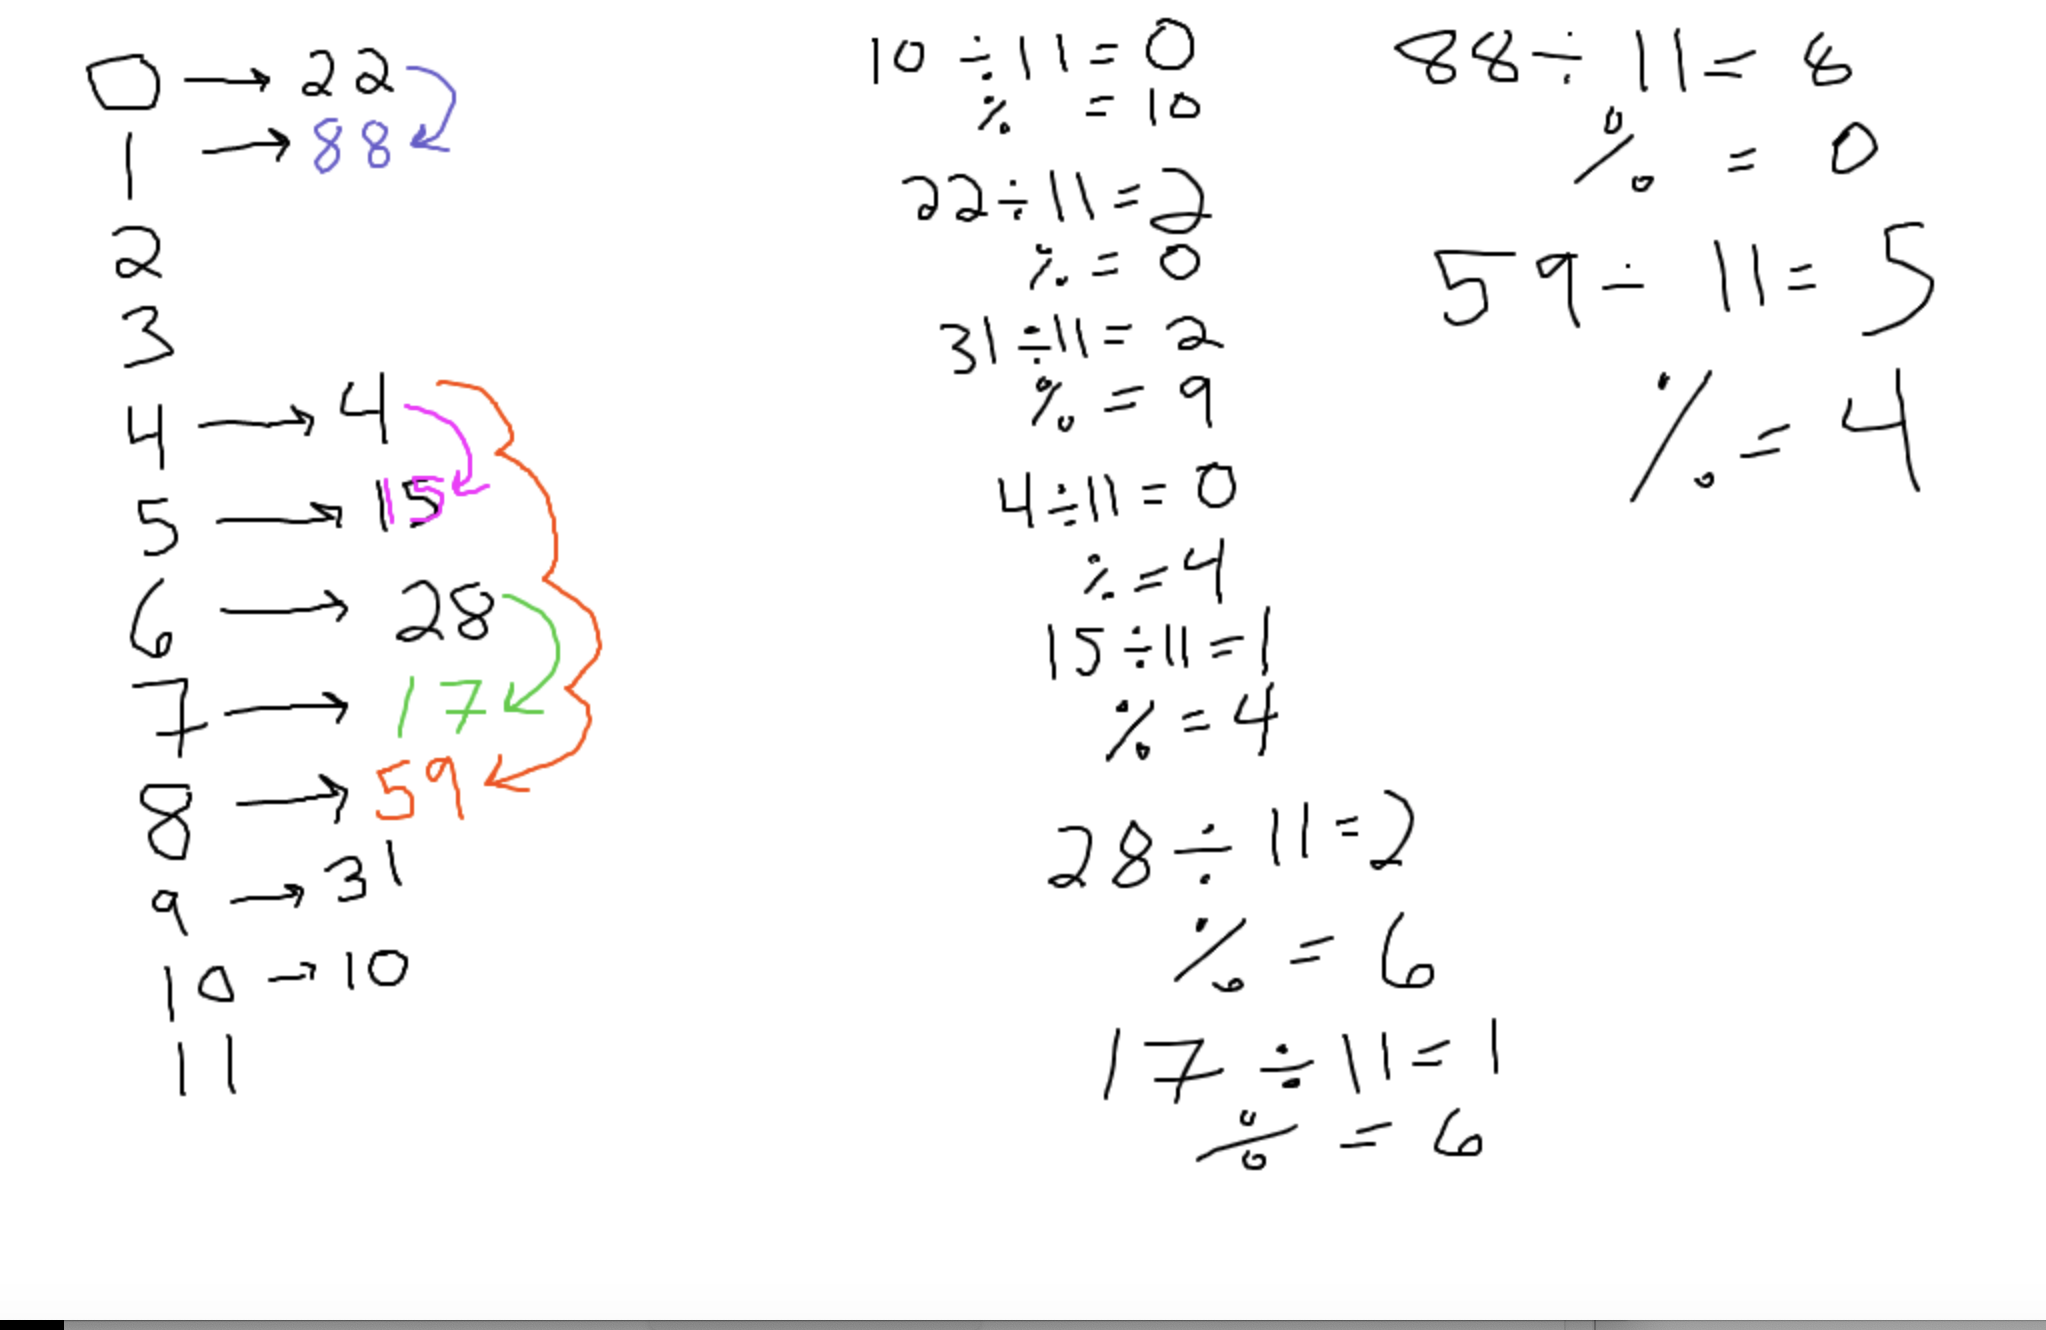 0 → 22
1 → 88
2
3
4 → 4
5 → 15
6 → 28
7 → 17
8 → 59
9 → 31
10 → 10
11
10 ÷ 11 = 0
% = 10
22 ÷ 11 = 2
% = 0
31 ÷ 11 = 2
% = 9
4 ÷ 11 = 0
% = 4
15 ÷ 11 = 1
% = 4
28 ÷ 11 = 2
% = 6
17 ÷ 11 = 1
% = 6
88 ÷ 11 = 8
% = 0
59 ÷ 11 = 5
% = 4